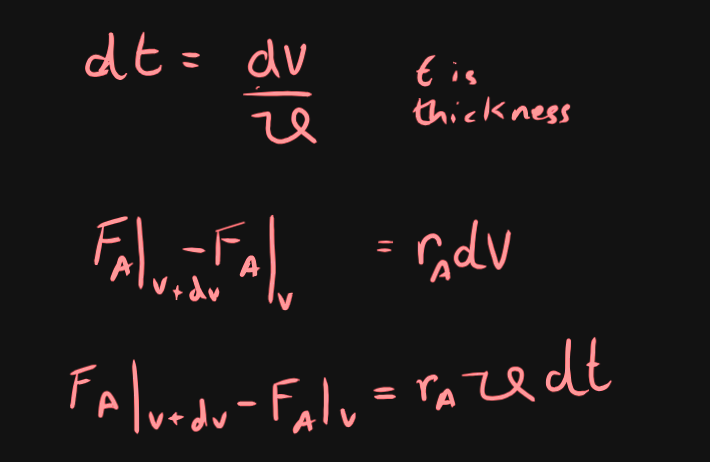 dt = dv/υ
t is
thickness
F_A|_{v+dv} - F_A|_v = r_A dV
F_A|_{v+dv} - F_A|_v = r_A υ dt